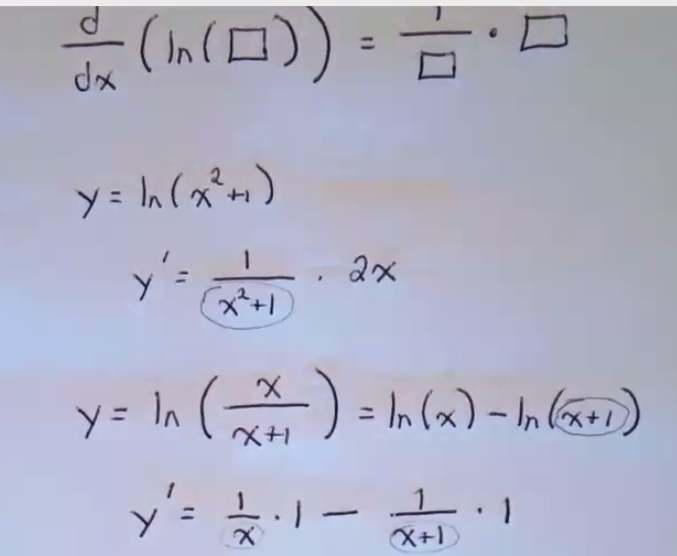 d/dx (ln(□)) = 1/□ · □
y = ln(x²+1)
y' = 1/(x²+1) · 2x
y = ln(x/(x+1)) = ln(x) - ln(x+1)
y' = 1/x · 1 - 1/(x+1) · 1